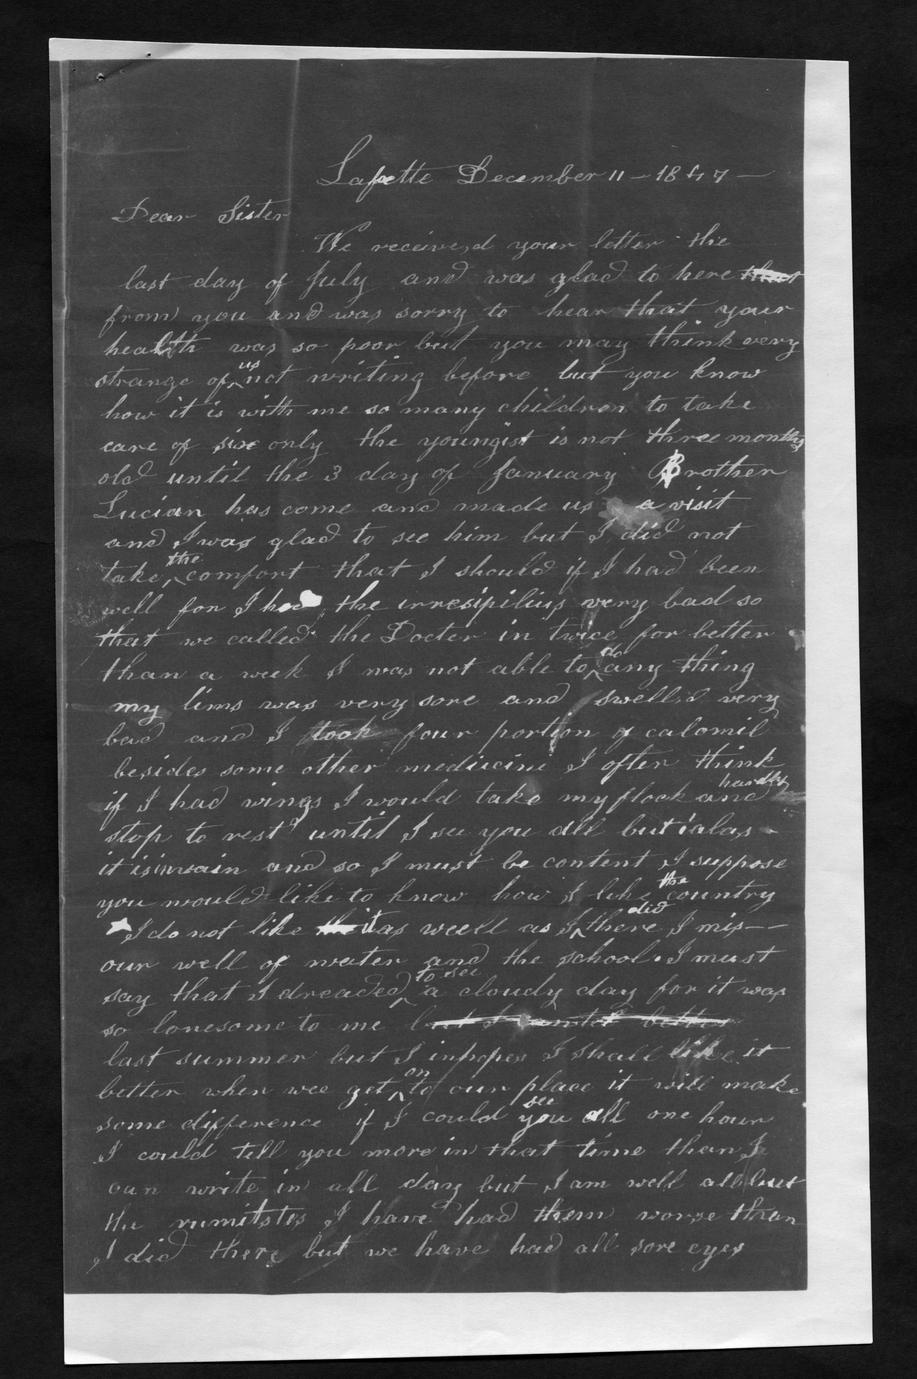 Lafette December 11 - 1847 -
Dear Sister
We received your letter the
last day of July and was glad to here that
from you and was sorry to hear that your
health was so poor but you may think every
strange of us not writing before but you know
how it is with me so many children to take
care of six only the youngist is not three months
old until the 3 day of January Brother
Lucian has come and made us a visit
and I was glad to see him but I did not
take the comfort that I should if I had been
well for I had the irresipilius very bad so
that we called the Docter in twice for better
than a week I was not able to do any thing
my lims was very sore and swell,d very
bad and I took four portion of calomil
besides some other mediicine I often think
if I had wings I would take my flock and hardly
stop to rest until I see you all but alas -
it is invain and so I must be content I suppose
you would like to know how I like the country
I do not like it as weell as I did there I mis--
our well of water and the school. I must
say that I dreaded to see a cloudy day for it was
so lonesome to me
last summer but I inhopes I shall like it
better when wee get on to our place it will make
some difference if I could see you all one hour
I could tell you more in that time than I
can write in all day but I am well all but
the rumitstis I have had them worse than
I did there but we have had all sore eyes